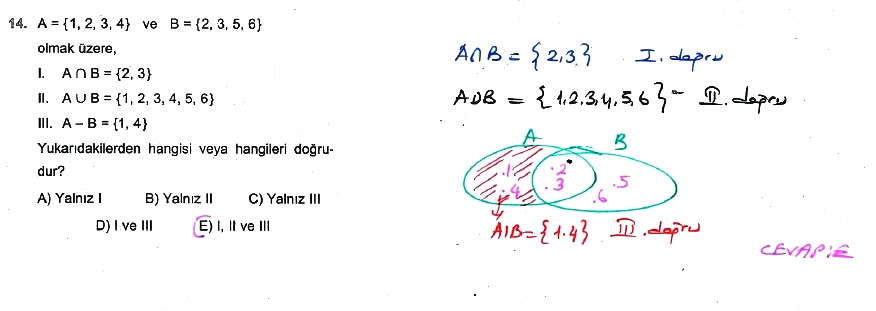 14. A = {1, 2, 3, 4} ve B = {2, 3, 5, 6}
olmak üzere,
I. A ∩ B = {2, 3}
II. A ∪ B = {1, 2, 3, 4, 5, 6}
III. A – B = {1, 4}
Yukarıdakilerden hangisi veya hangileri doğru-
dur?
A) Yalnız I B) Yalnız II C) Yalnız III
D) I ve III E) I, II ve III
A∩B = {2,3} I. doğru
A∪B = {1,2,3,4,5,6} - II. doğru
A B
.1 .2 .5
.4 .3 .6
A\B = {1.4} III. doğru
CEVAP:E